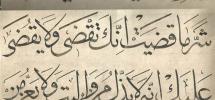 شرما قضيت انك تقضى ولا يقضى
عليك انه لا يذل من واليت ولا يعز من